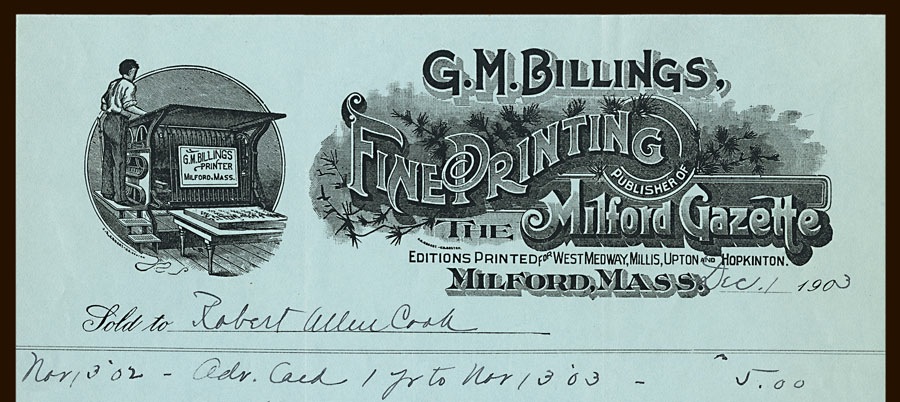 G.M. BILLINGS,
FINE PRINTING
PUBLISHER OF
THE Milford Gazette
EDITIONS PRINTED FOR WEST MEDWAY, MILLIS, UPTON AND HOPKINTON.
MILFORD, MASS. Dec. 1 1903
G.M. BILLINGS
PRINTER
MILFORD, MASS.
Sold to Robert Allen Cook
Nov 13 '02 - Adv. Card 1 yr to Nov 13 '03 - 5.00